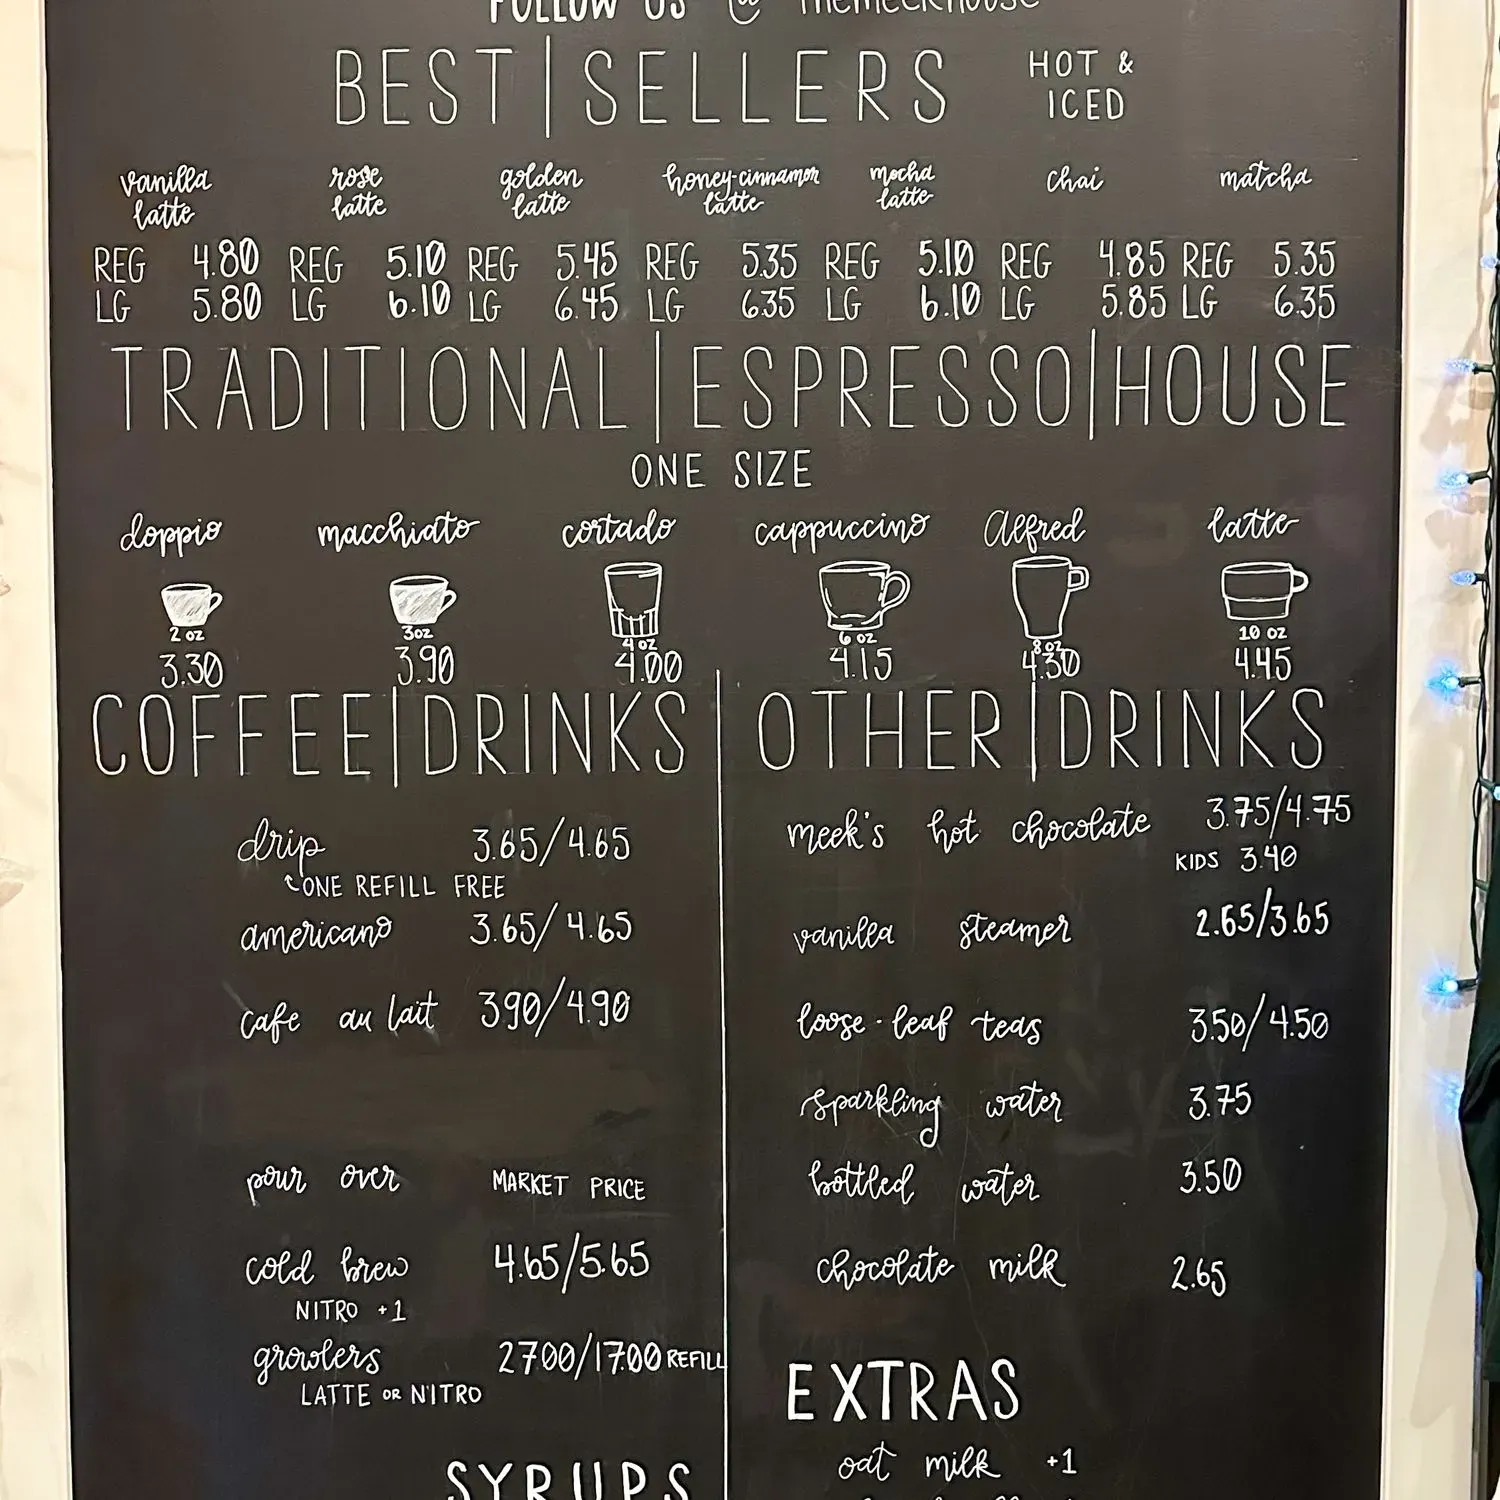 FOLLOW US @ THEMEEKHOUSE
BEST|SELLERS HOT &
ICED
vanilla rose golden honey-cinnamon mocha chai matcha
latte latte latte latte latte
REG 4.80 REG 5.10 REG 5.45 REG 5.35 REG 5.10 REG 4.85 REG 5.35
LG 5.80 LG 6.10 LG 6.45 LG 6.35 LG 6.10 LG 5.85 LG 6.35
TRADITIONAL|ESPRESSO|HOUSE
ONE SIZE
doppio macchiato cortado cappuccino Alfred latte
2 oz 3oz 4 oz 6 oz 8 oz 10 oz
3.30 3.90 4.00 4.15 4.30 4.45
COFFEE|DRINKS
drip 3.65/4.65
ONE REFILL FREE
americano 3.65/4.65
cafe au lait 3.90/4.90
pour over MARKET PRICE
cold brew 4.65/5.65
NITRO +1
growlers 27.00/17.00 REFILL
LATTE OR NITRO
SYRUPS
OTHER|DRINKS
meek's hot chocolate 3.75/4.75
KIDS 3.40
vanilla steamer 2.65/3.65
loose-leaf teas 3.50/4.50
sparkling water 3.75
bottled water 3.50
chocolate milk 2.65
EXTRAS
oat milk +1